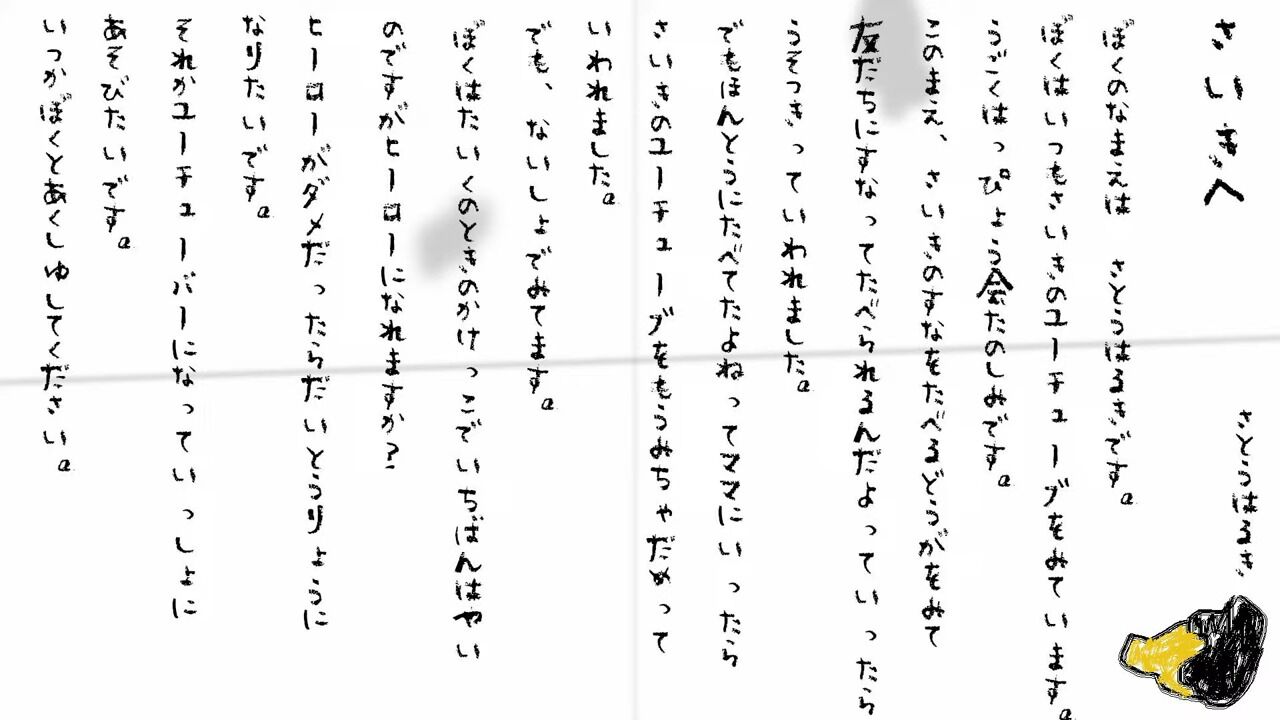 さいきへ
さとうはるき
ぼくのなまえは　さとうはるきです。
ぼくはいつもさいきのユーチューブをみています。
うごくはっぴょう会たのしみです。
このまえ、さいきのすなをたべるどうがをみて
友だちにすなってたべられるんだよっていったら
うそつきっていわれました。
でもほんとうにたべてたよねってママにいったら
さいきのユーチューブをもうみちゃだめって
いわれました。
でも、ないしょでみてます。
ぼくはたいくのときのかけっこでいちばんはやい
のですがヒーローになれますか？
ヒーローがダメだったらだいとうりょうに
なりたいです。
それかユーチューバーになっていっしょに
あそびたいです。
いつかぼくとあくしゅしてください。